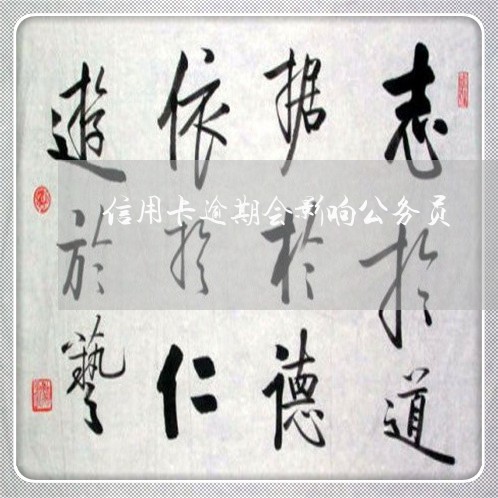 志於道
据於德
依於仁
遊於藝
信用卡逾期会影响公务员